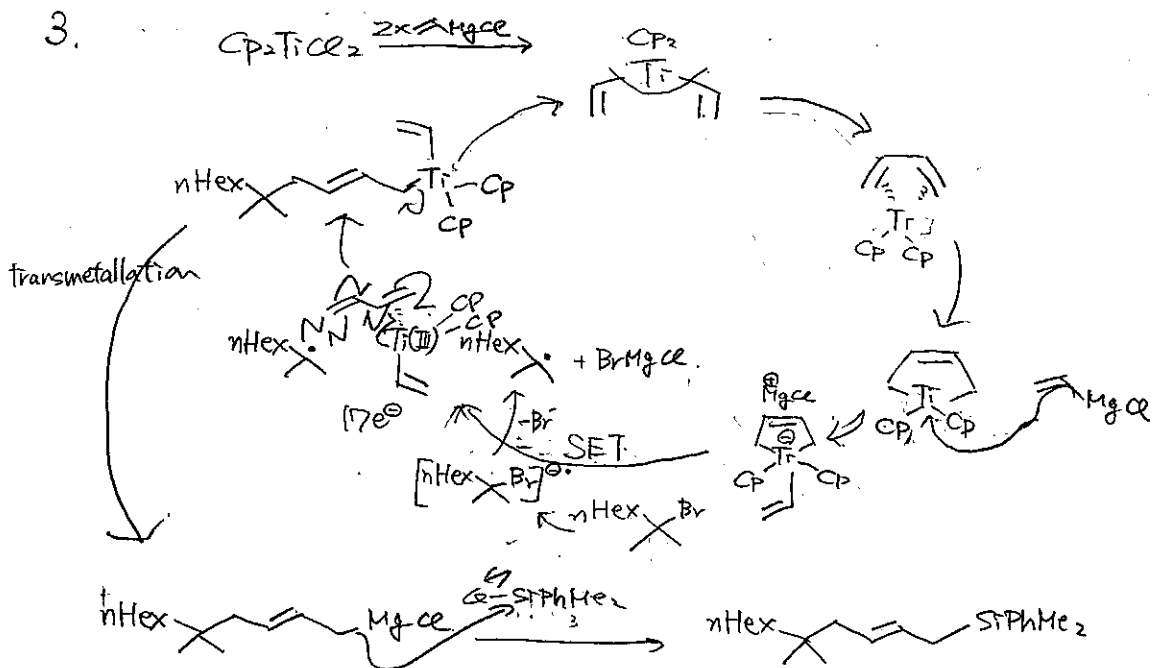 3.
Cp₂TiCl₂
2x MgCl
Cp₂
Ti
Ti
Cp
Cp
nHex
Ti
Cp
Cp
transmetallation
Cp
Cp
(Ti(III))
nHex
nHex
+ BrMgCl.
17e⊖
-Br⁻
SET
⊕
MgCl
⊖
Ti
Cp
Cp
Ti
Cp
Cp
MgCl
[nHex Br]⊖•
nHex Br
nHex
MgCl
Cl-SiPhMe₂
nHex
SiPhMe₂